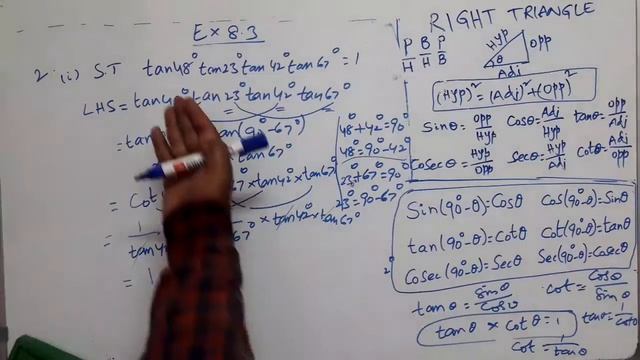 Ex 8.3
2 (i) S.T tan48° tan23° tan42° tan67° = 1
LHS = tan48° tan23° tan42° tan67°
= tan (90°-67°)
tan67°
= Cot 67° × tan42° × tan67°
= 1/tan4 67° × tan42° × tan67°
= 1
48°+42°=90°
48°=90°-42°
23°+67°=90°
23°=90°-67°
RIGHT TRIANGLE
P/H B/H P/B
Hyp Opp
θ
Adj
(Hyp)²=(Adj)²+(Opp)²
Sinθ=Opp/Hyp Cosθ=Adj/Hyp tanθ=Opp/Adj
Cosecθ=Hyp/Opp Secθ=Hyp/Adj Cotθ=Adj/Opp
Sin(90°-θ)=Cosθ Cos(90°-θ)=Sinθ
tan(90°-θ)=Cotθ Cot(90°-θ)=tanθ
Cosec(90°-θ)=Secθ Sec(90°-θ)=Cosecθ
tanθ=Sinθ/Cosθ Cot=Cosθ/Sinθ
tanθ × Cotθ=1 tanθ=1/Cotθ
Cot=1/tanθ